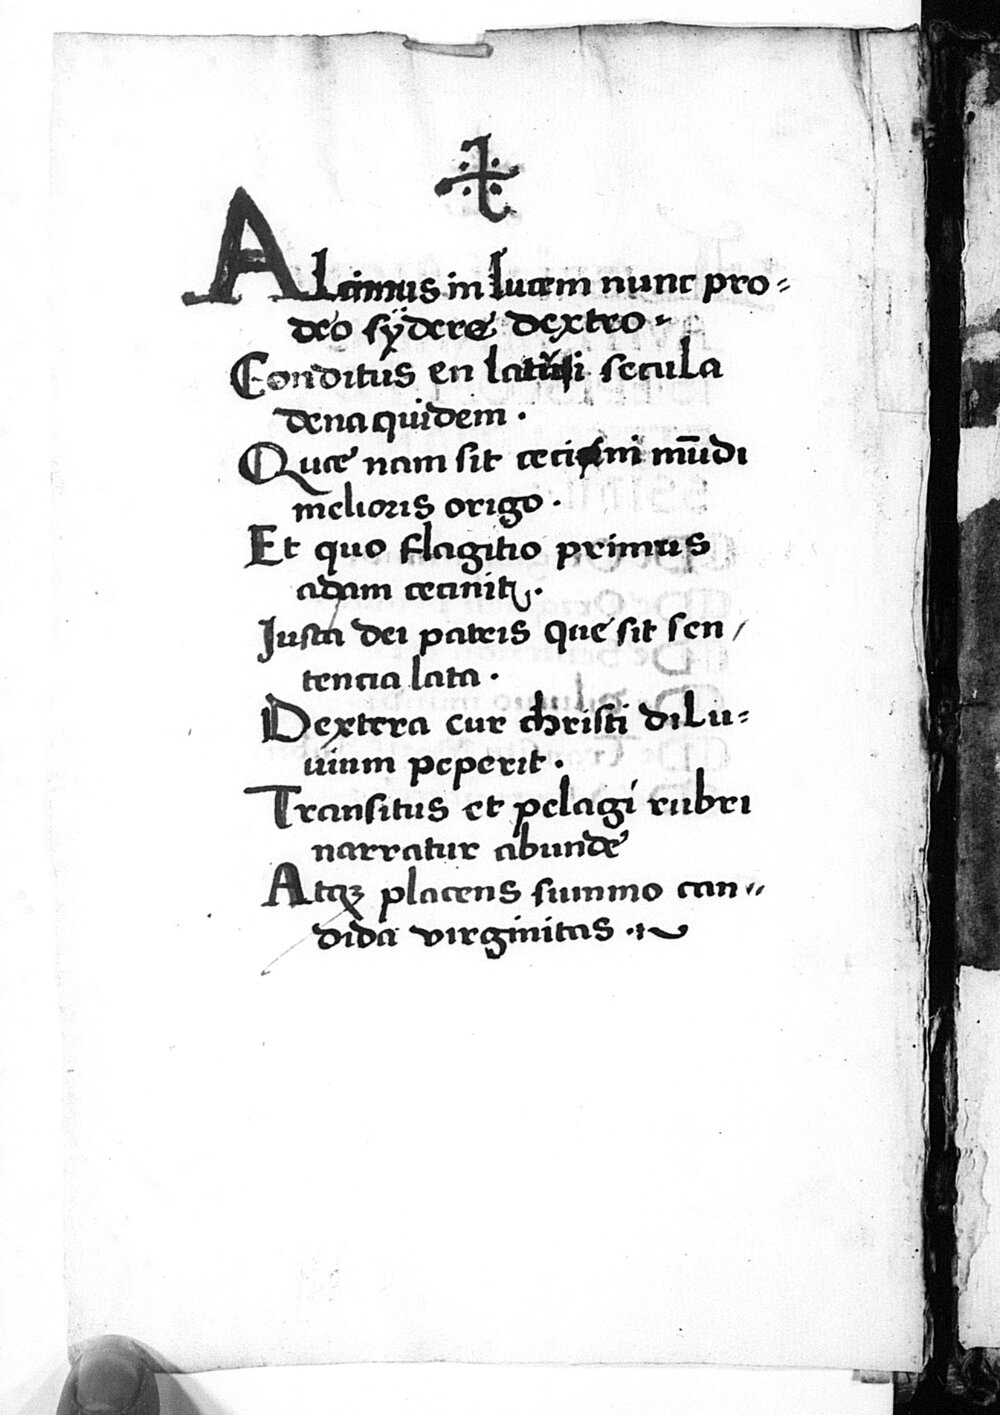 Alcimus in lucem nunc pro=
deo sÿdere dextro
Conditus en latui secula
dena quidem.
Quæ nam sit cecini mūdi
melioris origo.
Et quo flagitio primus
adam cecinit.
Justa dei patris que sit sen/
tencia lata.
Dextera cur christi dilu=
uium peperit.
Transitus et pelagi rubri
narratur abunde
Atqꝫ placens summo can=
dida virginitas